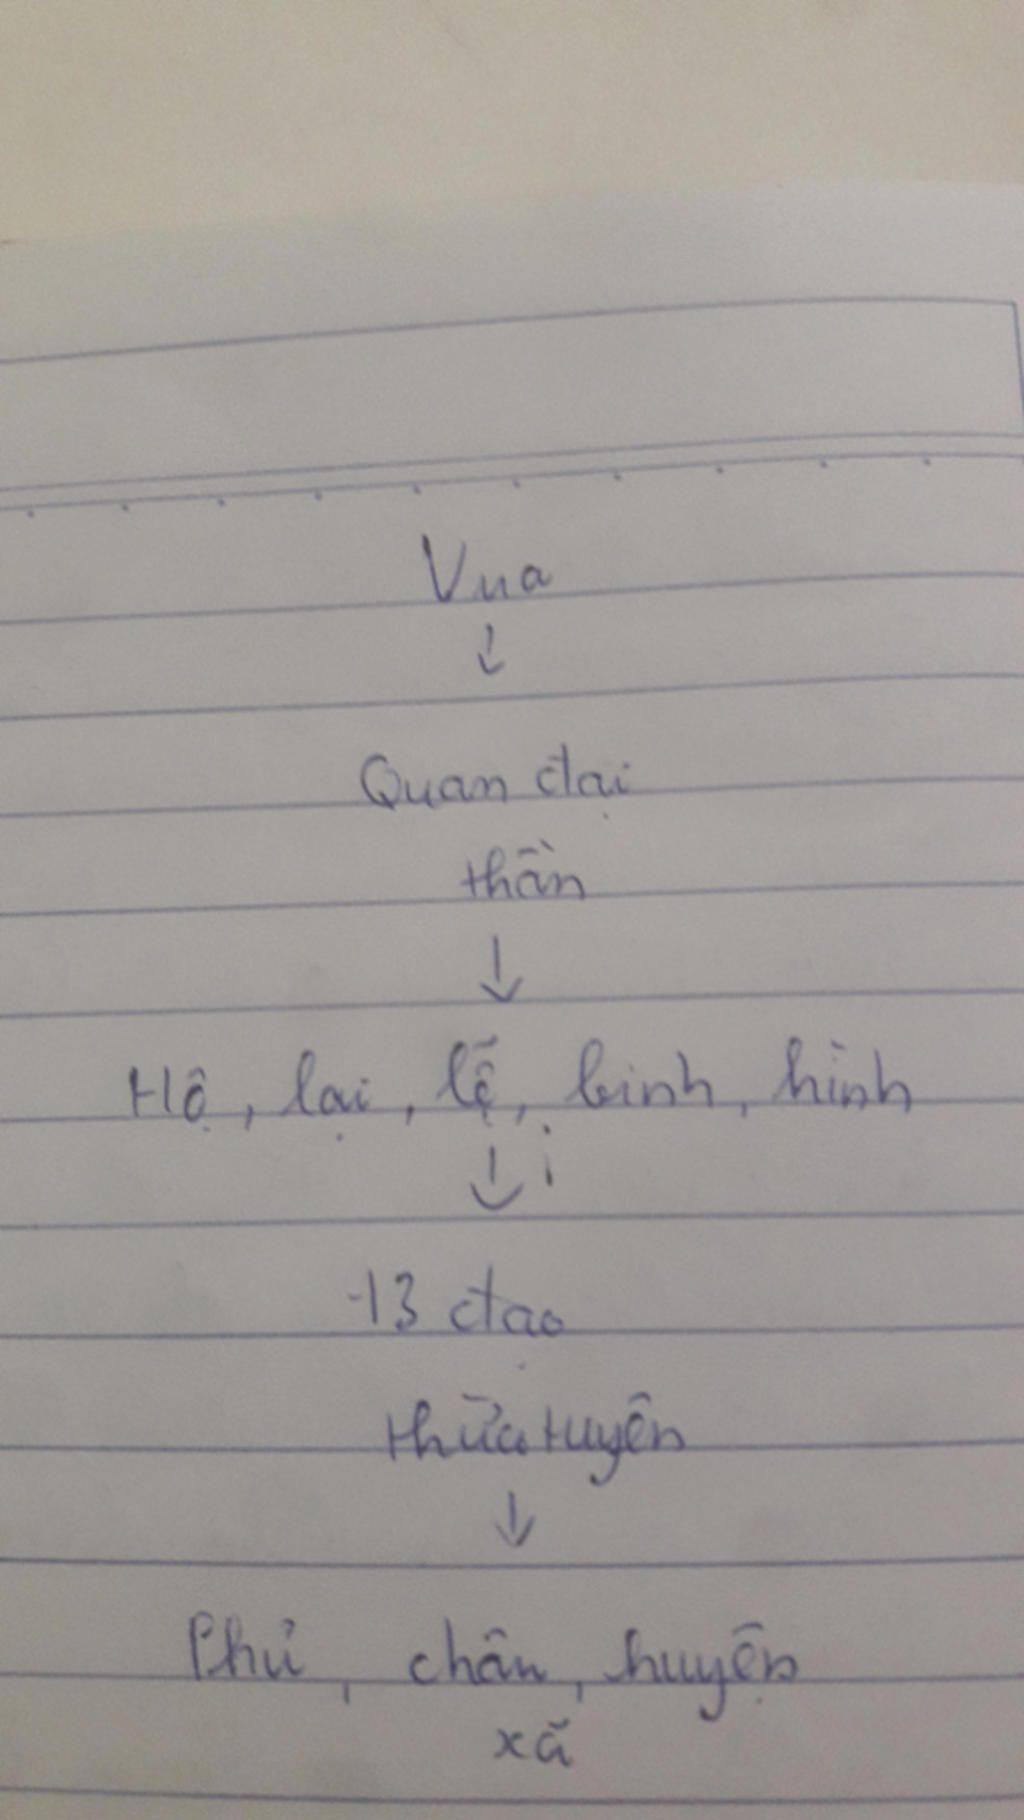 Vua
↓
Quan đại
thần
↓
Hộ, lại, lễ, binh, hình
↓
13 đạo
thừa tuyên
↓
Phủ, chân, huyện
xã